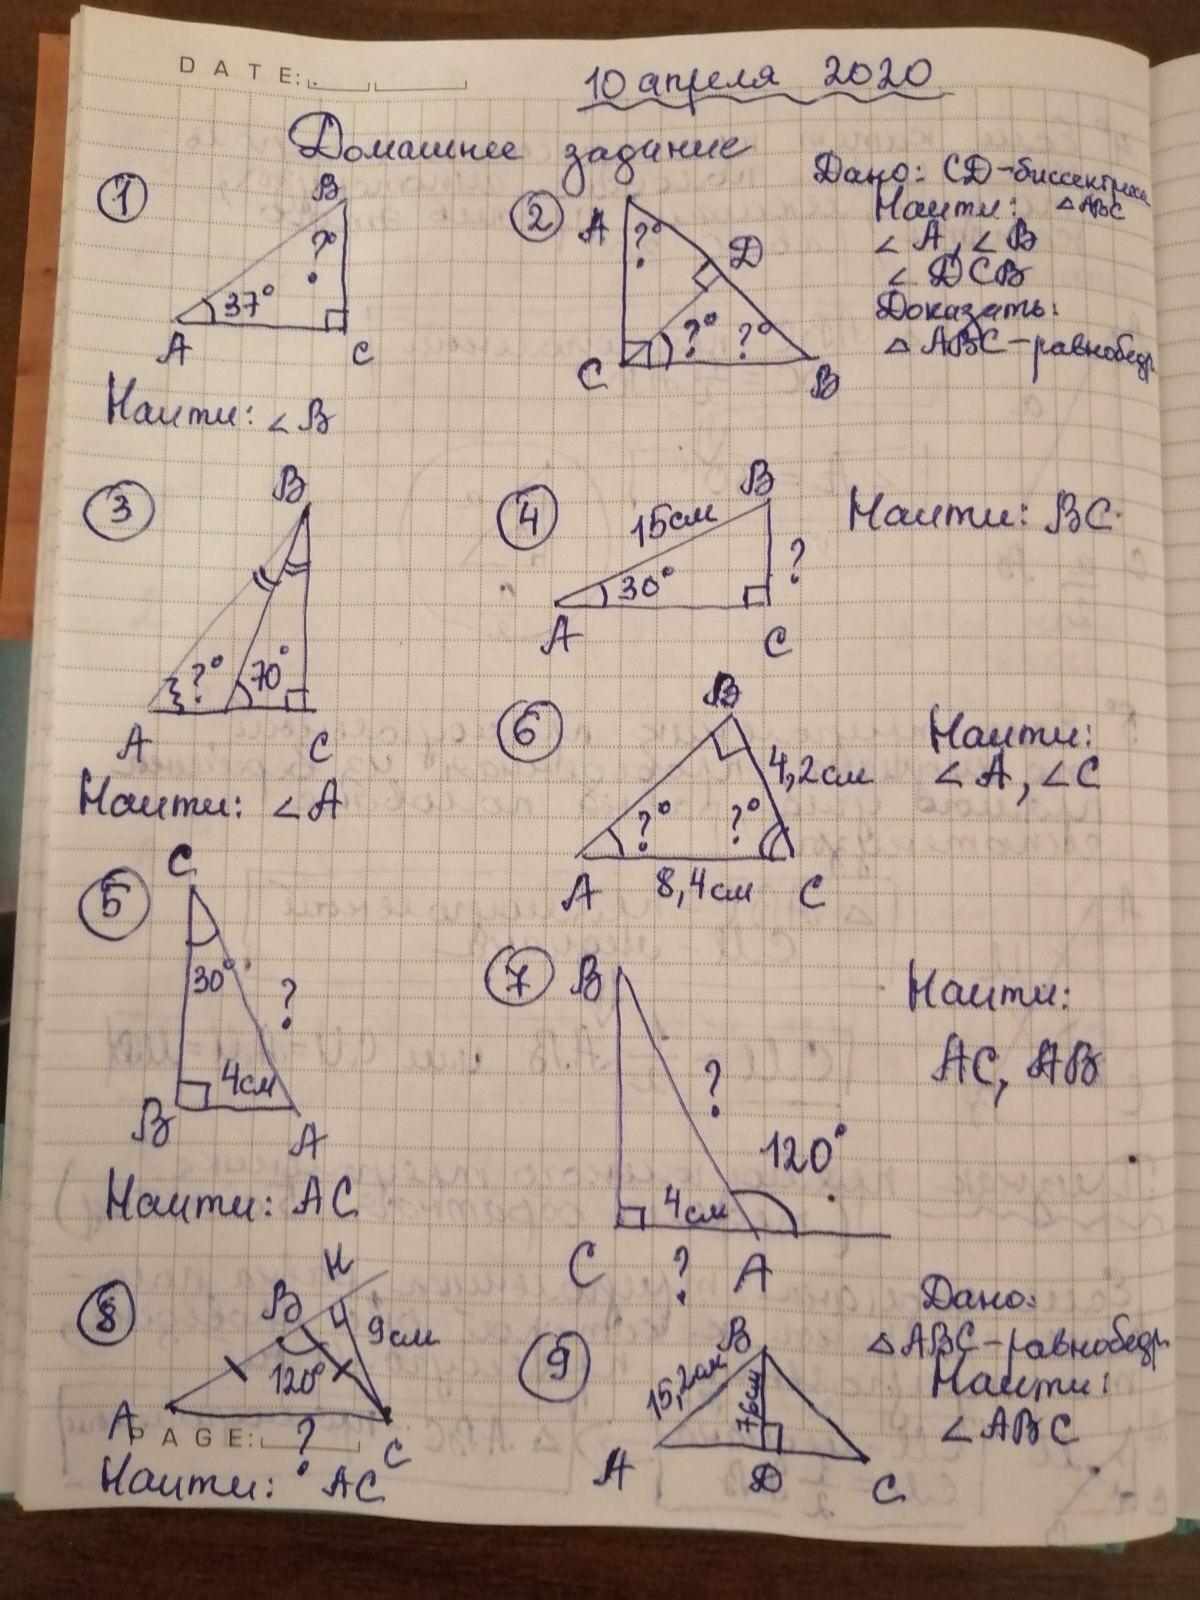 DATE:
10 апреля 2020
Домашнее задание
1
B
?°
37°
A
C
Найти: ∠B
2
A
?°
D
?°
?°
C
B
Дано: CD-биссектриса
△ABC
Найти:
∠A, ∠B
∠DCB
Доказать:
△ABC-равнобедр.
3
B
?°
70°
A
C
Найти: ∠A
4
B
15см
30°
?
A
C
Найти: BC
6
B
4,2см
?°
?°
A
8,4см
C
Найти:
∠A, ∠C
5
C
30°
?
4см
B
A
Найти: AC
7
B
?
120°
4см
C
?
A
Найти:
AC, AB
8
H
B
9см
120°
A
?
C
PAGE:
Найти: AC
9
B
15,2см
7,6см
A
D
C
Дано:
△ABC-равнобедр.
Найти:
∠ABC